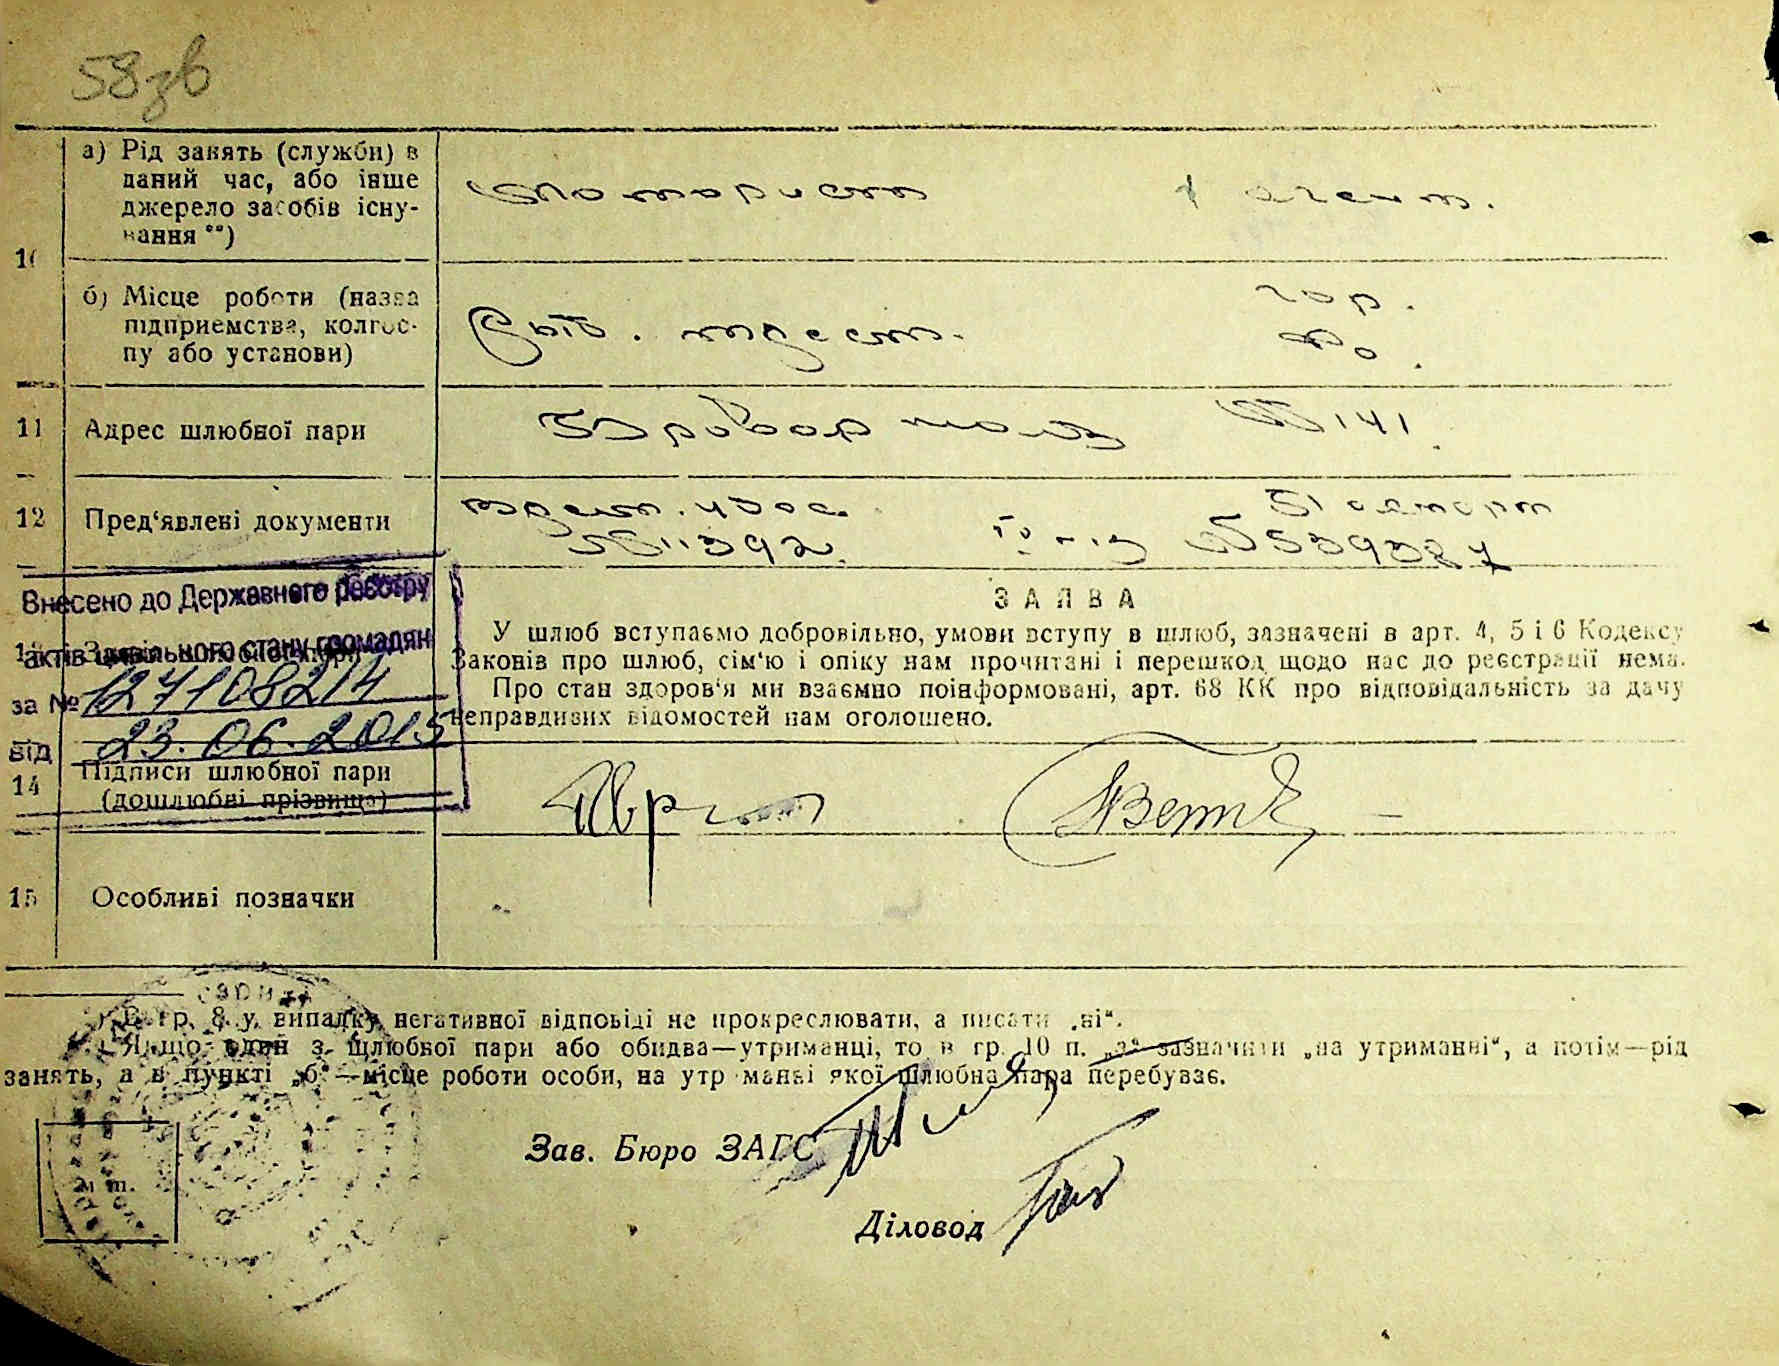 58зв
а) Рід занять (служби) в
даний час, або інше
джерело засобів існу-
вання **)
10
моторист
агент.
б) Місце роботи (назва
підприємства, колгос-
пу або установи)
трест.
гор.
11 Адрес шлюбної пари
№ 141
12 Пред‘явлені документи
№ 11392.
паспорт
№ 539387
Внесено до Державного реєстру
актів цивільного стану громадян
за № 127108214
від 23.06.2015
13
ЗАЯВА
У шлюб вступаємо добровільно, умови вступу в шлюб, зазначені в арт. 4, 5 і 6 Кодексу
Законів про шлюб, сім‘ю і опіку нам прочитані і перешкод щодо нас до реєстрації нема.
Про стан здоров‘я ми взаємно поінформовані, арт. 68 КК про відповідальність за дачу
неправдивих відомостей нам оголошено.
14 Підписи шлюбної пари
(дошлюбні прізвища)
15 Особливі позначки
В гр. 8 у випадку негативної відповіді не прокреслювати, а писати „ні“.
Якщо один з шлюбної пари або обидва—утриманці, то в гр. 10 п. „а“ зазначити „на утриманні“, а потім—рід
занять, а в пункті „б“—місце роботи особи, на утриманні якої шлюбна пара перебуває.
Зав. Бюро ЗАГС
м. п.
Діловод